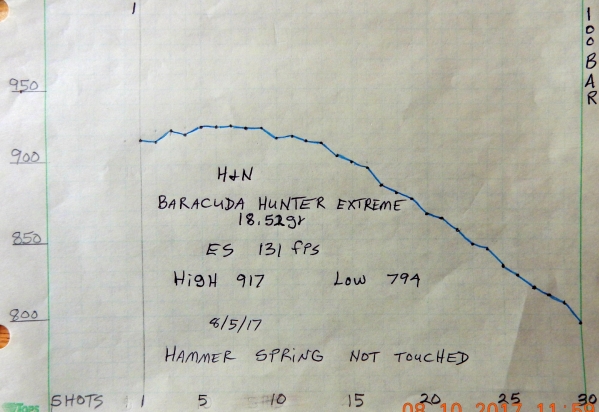 1
100 BAR
950
900
850
800
H&N
BARACUDA HUNTER EXTREME
18.52gr
ES 131 fps
HigH 917 Low 794
8/5/17
HAMMER SPRING NOT TOUCHED
SHOTS 1 5 10 15 20 25 30
08 10 2017 11:59